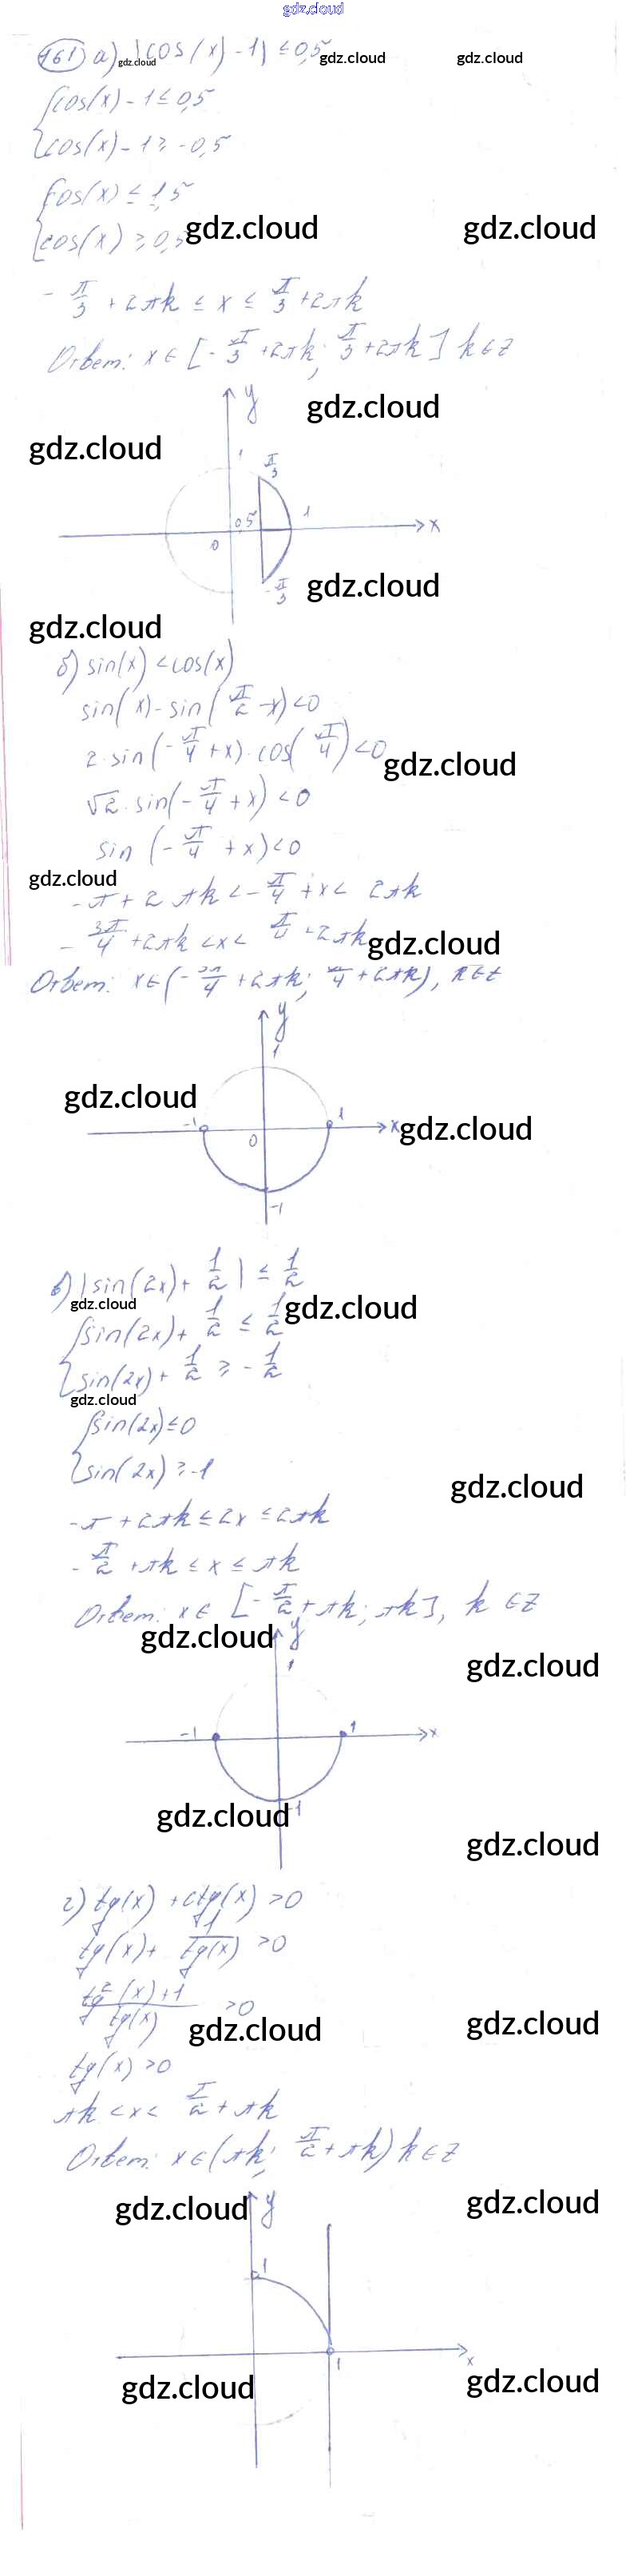 gdz.cloud
161 а) |cos(x) - 1| ≤ 0,5
gdz.cloud gdz.cloud gdz.cloud
{cos(x) - 1 ≤ 0,5
{cos(x) - 1 ≥ -0,5
{cos(x) ≤ 1,5
{cos(x) ≥ 0,5
gdz.cloud gdz.cloud
-π/3 + 2πk ≤ x ≤ π/3 + 2πk
Ответ: x ∈ [-π/3 + 2πk; π/3 + 2πk] k ∈ Z
y
gdz.cloud
gdz.cloud
1 π/3
0,5 1
0 x
-π/3
gdz.cloud
gdz.cloud
б) sin(x) < cos(x)
sin(x) - sin(π/2 - x) < 0
2·sin(-π/4 + x)·cos(π/4) < 0
gdz.cloud
√2·sin(-π/4 + x) < 0
sin(-π/4 + x) < 0
gdz.cloud
-π + 2πk < -π/4 + x < 2πk
-3π/4 + 2πk < x < π/4 + 2πk
gdz.cloud
Ответ: x ∈ (-3π/4 + 2πk; π/4 + 2πk), k ∈ Z
y
1
gdz.cloud
-1 0 1 x
gdz.cloud
-1
в) |sin(2x) + 1/2| ≤ 1/2
gdz.cloud gdz.cloud
{sin(2x) + 1/2 ≤ 1/2
{sin(2x) + 1/2 ≥ -1/2
gdz.cloud
{sin(2x) ≤ 0
{sin(2x) ≥ -1
gdz.cloud
-π + 2πk ≤ 2x ≤ 2πk
-π/2 + πk ≤ x ≤ πk
Ответ: x ∈ [-π/2 + πk; πk], k ∈ Z
gdz.cloud y
1
gdz.cloud
-1 1 x
gdz.cloud -1
gdz.cloud
г) tg(x) + ctg(x) > 0
tg(x) + 1/tg(x) > 0
(tg²(x) + 1)/tg(x) > 0
gdz.cloud gdz.cloud
tg(x) > 0
πk < x < π/2 + πk
Ответ: x ∈ (πk; π/2 + πk) k ∈ Z
gdz.cloud y gdz.cloud
1
1 x
gdz.cloud gdz.cloud